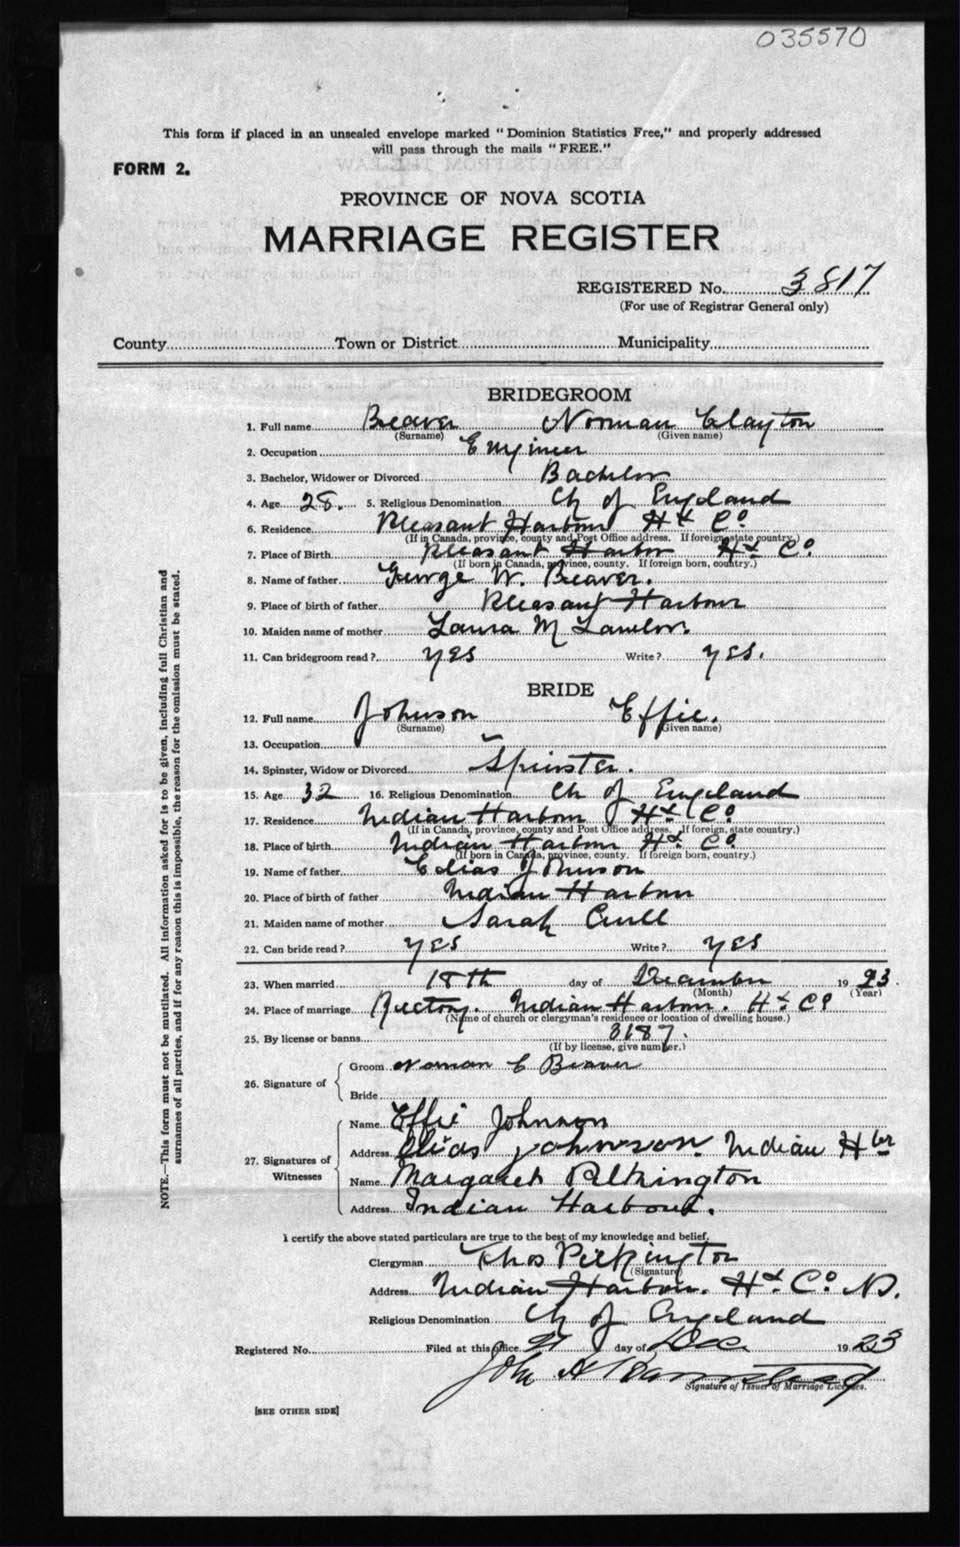 035570
This form if placed in an unsealed envelope marked "Dominion Statistics Free," and properly addressed
will pass through the mails "FREE."
FORM 2.
PROVINCE OF NOVA SCOTIA
MARRIAGE REGISTER
REGISTERED No. 3817
(For use of Registrar General only)
County Town or District Municipality
BRIDEGROOM
1. Full name Beaver Norman Clayton
(Surname) (Given name)
2. Occupation Engineer
3. Bachelor, Widower or Divorced Bachelor
4. Age 28. 5. Religious Denomination Ch of England
6. Residence Pleasant Harbour Hx Co
(If in Canada, province, county and Post Office address. If foreign state country.)
7. Place of Birth Pleasant Harbor Hx Co
(If born in Canada, province, county. If foreign born, country.)
8. Name of father George W. Beaver.
9. Place of birth of father Pleasant Harbour
10. Maiden name of mother Laura M Lawlor.
11. Can bridegroom read? yes Write? yes.
BRIDE
12. Full name Johnson Effie.
(Surname) (Given name)
13. Occupation –
14. Spinster, Widow or Divorced Spinster.
15. Age 32 16. Religious Denomination Ch of England
17. Residence Indian Harbour Hx Co
(If in Canada, province, county and Post Office address. If foreign, state country.)
18. Place of birth Indian Harbour Hx Co
(If born in Canada, province, county. If foreign born, country.)
19. Name of father Elias Johnson
20. Place of birth of father Indian Harbour
21. Maiden name of mother Sarah
22. Can bride read? yes Write? yes
23. When married 18th day of December 1923.
(Month) (Year)
24. Place of marriage Rectory. Indian Harbour. Hx Co
(Name of church or clergyman's residence or location of dwelling house.)
25. By license or banns 3187.
(If by license, give number.)
26. Signature of
Groom Norman C Beaver
Bride
Effie Johnson
27. Signatures of Witnesses
Name
Address Elias Johnson. Indian Hbr
Name Margaret Pilkington
Address Indian Harbour.
I certify the above stated particulars are true to the best of my knowledge and belief.
Clergyman Thos Pilkington
(Signature)
Address Indian Harbour. Hx. Co. NS.
Religious Denomination Ch of England
Registered No. Filed at this office 21 day of Dec 1923
John A
Signature of Issuer of Marriage Licenses.
[SEE OTHER SIDE]
NOTE.—This form must not be mutilated. All information asked for is to be given, including full Christian and
surnames of all parties, and if for any reason this is impossible, the reason for the omission must be stated.